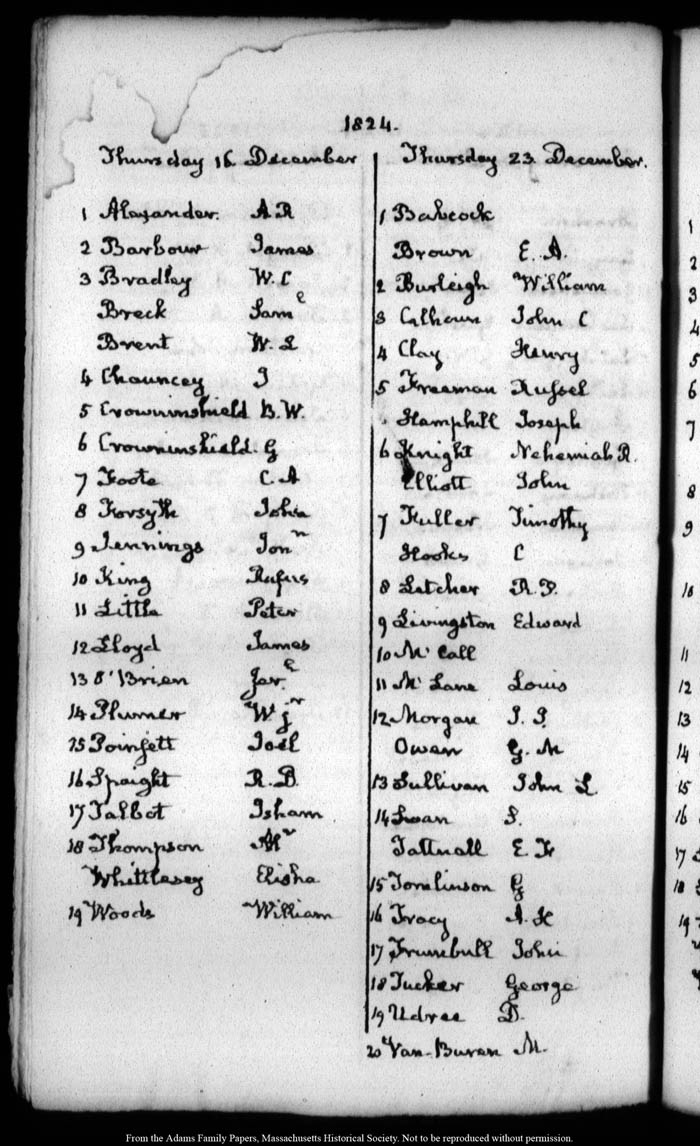 1824.
Thursday 16. December
1 Alexander. A R
2 Barbour James
3 Bradley W. C
Breck Sam^l
Brent W. L
4 Chauncey I
5 Crowninshield B. W.
6 Crowninshield. G
7 Foote C. A
8 Forsyth John
9 Jennings Jon^n
10 King Rufus
11 Little Peter
12 Lloyd James
13 O'Brien Jer.^h
14 Plumer W j^r
15 Poinsett Joel
16 Spaight R. D.
17 Talbot Isham
18 Thompson
Whittlesey Elisha
19 Woods William
Thursday 23 December.
1 Babcock
Brown E. A.
2 Burleigh William
3 Calhoun John C
4 Clay Henry
5 Freeman Russel
Hemphill Joseph
6 Knight Nehemiah R.
Elliott John
7 Fuller Timothy
Hooks C
8 Letcher R. P.
9 Livingston Edward
10 Mc Call
11 Mc Lane Louis
12 Morgan J. J.
Owen G. M
13 Sullivan John L
14 Swan S.
Tattnall E F
15 Tomlinson G
16 Tracy A. H
17 Trumbull John
18 Tucker George
19 Udree D.
20 Van-Buren M.
1
2
3
4
5
6
7
8
9
10
11
12
13
14
15
16
17
18
19
From the Adams Family Papers, Massachusetts Historical Society. Not to be reproduced without permission.